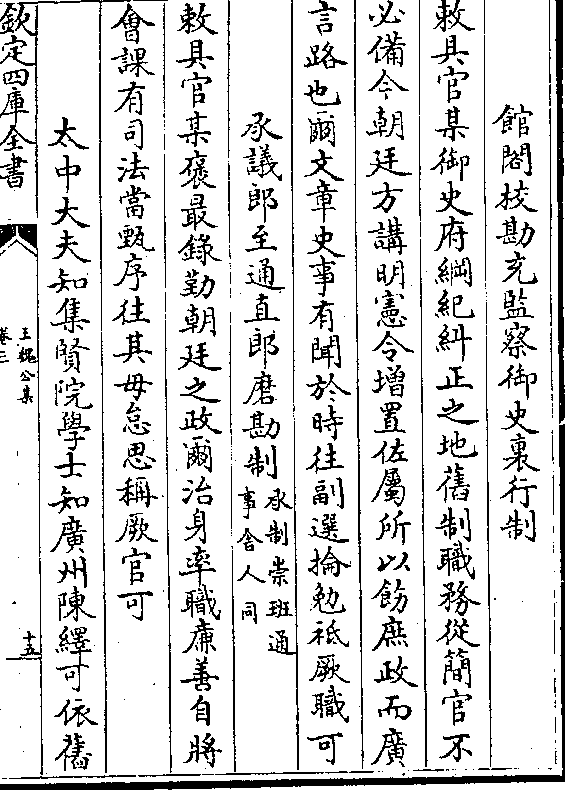 館閣校勘充監察御史裏行制
敕具官某御史府綱紀糾正之地舊制職務從簡官不
必備今朝廷方講明憲令增置佐屬所以飭庶政而廣
言路也爾文章史事有聞於時往副選掄勉祗厥職可
承議郎至通直郎磨勘制承制崇班通
事舍人同
敕具官某褒最錄勤朝廷之政爾治身率職廉善自將
會課有司法當甄序往其毋怠思稱厥官可
太中大夫知集賢院學士知廣州陳繹可依舊
欽定四庫全書
王魏公集
卷三
十五